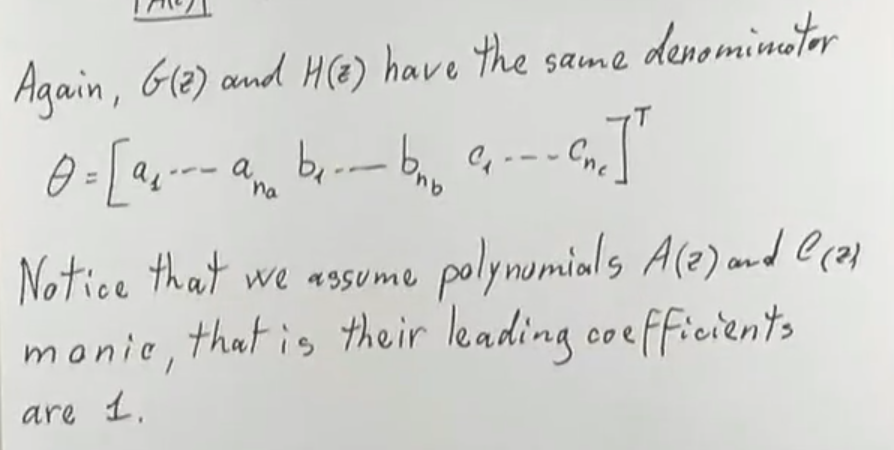 Again, G(z) and H(z) have the same denominator
θ = [a₁ --- a_na b₁ --- b_nb c₁ ---- c_nc]ᵀ
Notice that we assume polynomials A(z) and C(z)
monic, that is their leading coefficients
are 1.